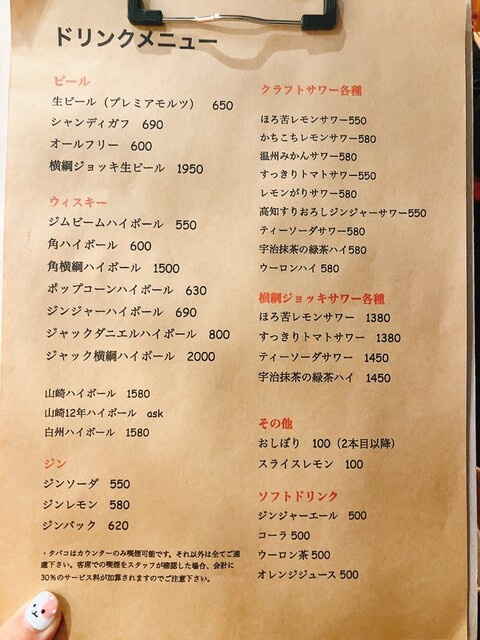 ドリンクメニュー
ビール
生ビール（プレミアモルツ） 650
シャンディガフ 690
オールフリー 600
横綱ジョッキ生ビール 1950
ウィスキー
ジムビームハイボール 550
角ハイボール 600
角横綱ハイボール 1500
ポップコーンハイボール 630
ジンジャーハイボール 690
ジャックダニエルハイボール 800
ジャック横綱ハイボール 2000
山崎ハイボール 1580
山崎12年ハイボール ask
白州ハイボール 1580
ジン
ジンソーダ 550
ジンレモン 580
ジンバック 620
・タバコはカウンターのみ喫煙可能です。それ以外は全てご遠
慮下さい。客席での喫煙をスタッフが確認した場合、会計に
30％のサービス料が加算されますのでご注意下さい。
クラフトサワー各種
ほろ苦レモンサワー550
かちこちレモンサワー580
温州みかんサワー580
すっきりトマトサワー550
レモンがりサワー580
高知すりおろしジンジャーサワー550
ティーソーダサワー580
宇治抹茶の緑茶ハイ580
ウーロンハイ 580
横綱ジョッキサワー各種
ほろ苦レモンサワー 1380
すっきりトマトサワー 1380
ティーソーダサワー 1450
宇治抹茶の緑茶ハイ 1450
その他
おしぼり 100（2本目以降）
スライスレモン 100
ソフトドリンク
ジンジャーエール 500
コーラ 500
ウーロン茶 500
オレンジジュース 500